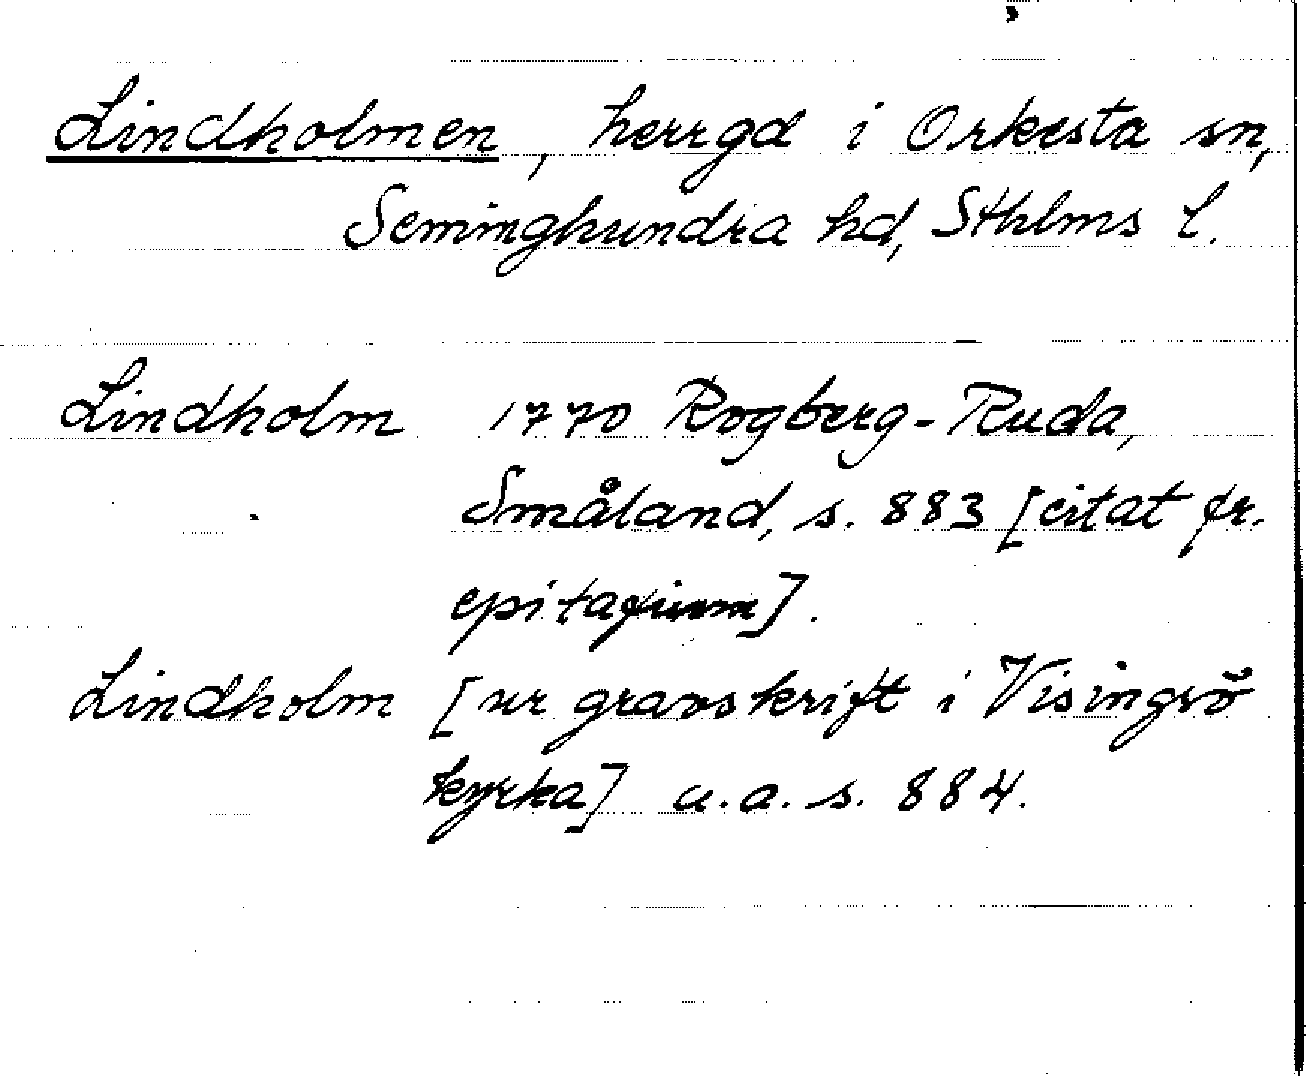 Lindholmen, herrgd i Orkesta sn,
Seminghundra hd, Sthlms l.
Lindholm 1770 Rogberg-Ruda,
Småland, s. 883 [citat fr.
epitafium].
Lindholm [ur gravskrift i Visingsö
kyrka] a.a. s. 884.